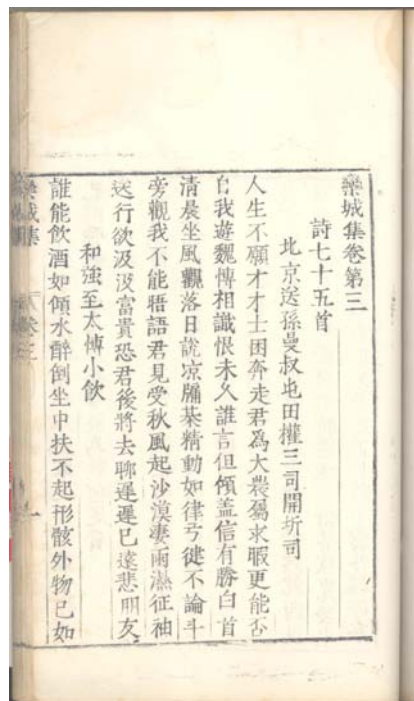 欒城集卷第三
詩七十五首
北京送孫曼叔屯田權三司開圻司
人生不願才才士困奔走君爲大農屬求暇更能否
自我遊魏博相識恨未久誰言但傾盖信有勝白首
清晨坐風觀落日說凉牖棊精動如律弓健不論斗
旁觀我不能晤語君見受秋風起沙漠凄雨濕征袖
送行欲汲汲富貴恐君後將去聊遲遲已遠悲朋友
和強至太博小飲
誰能飲酒如傾水醉倒坐中扶不起形骸外物已如
欒城集
卷三